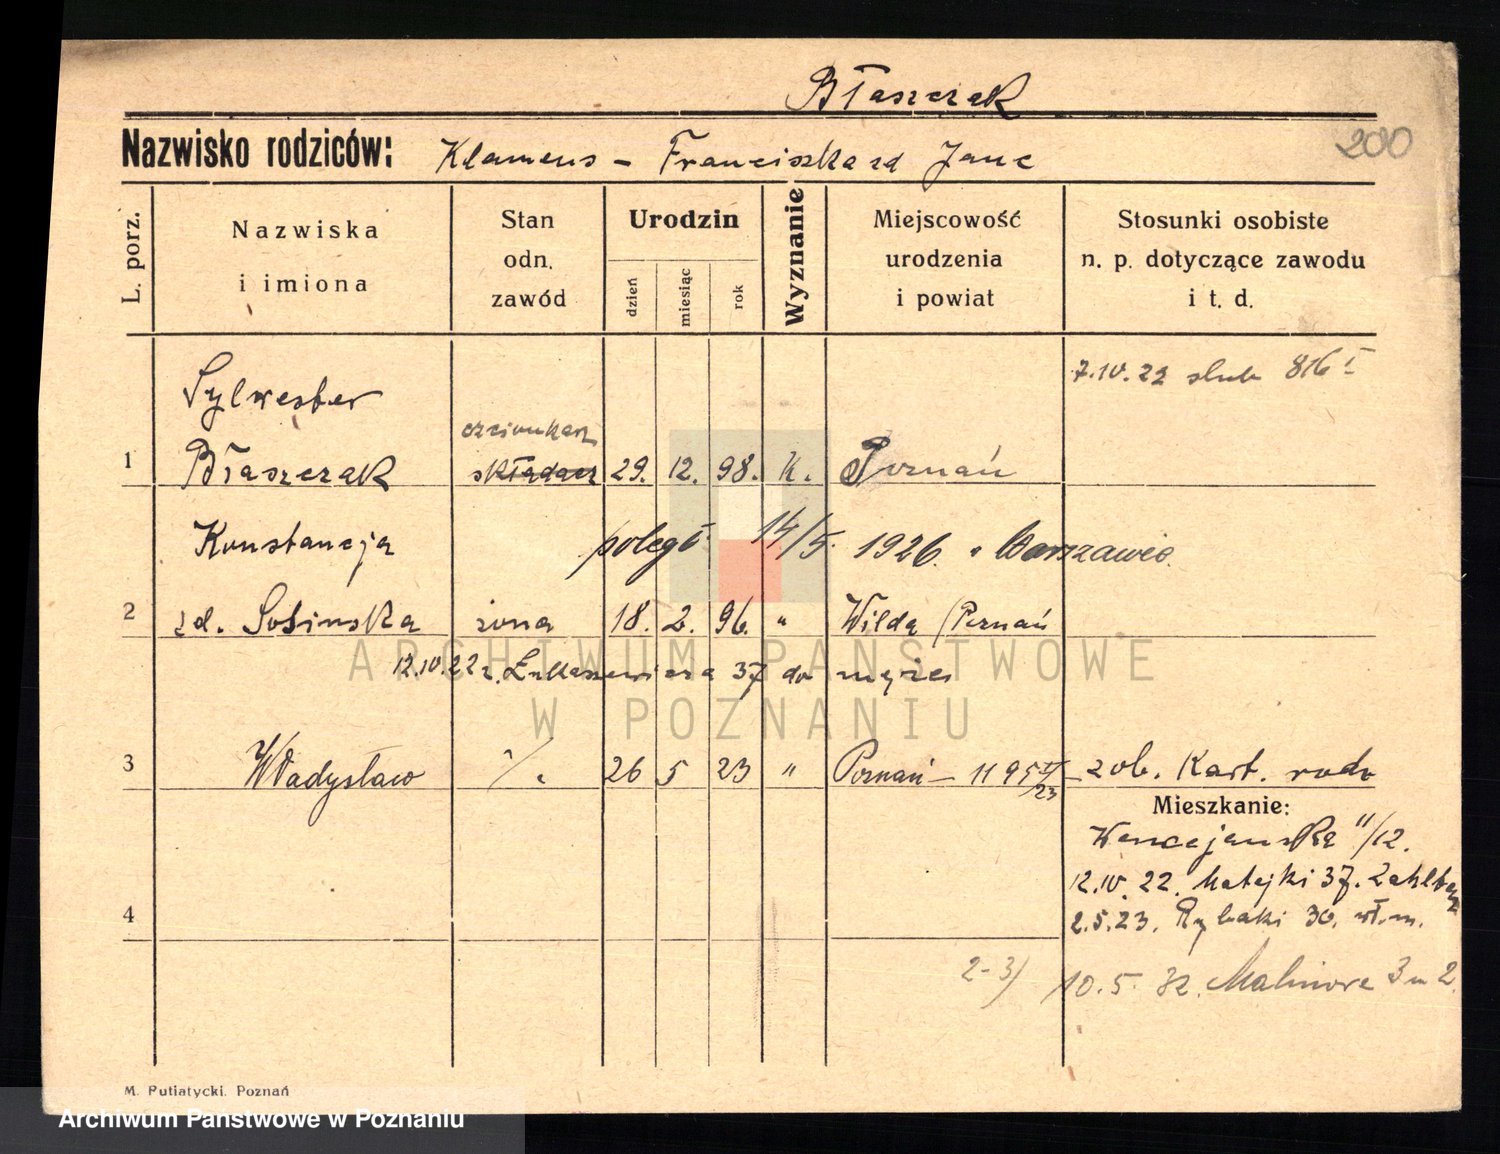 Błaszczak
Nazwisko rodziców: Klemens - Franciszka zd Janc
200
L. porz.
Nazwiska
i imiona
Stan
odn.
zawód
Urodzin
dzień
miesiąc
rok
Wyznanie
Miejscowość
urodzenia
i powiat
Stosunki osobiste
n. p. dotyczące zawodu
i t. d.
7.IV.22 slub 816 I
Sylwester
czcionkarz
1 Błaszczak składacz 29. 12. 98. K. Poznań
Konstancja
poległ 14/5. 1926. w Warszawie.
2 zd. Sosinska żona 18. 2. 96. " Wilda (Poznań
12.IV.22 z Łukaszewicza 37 do męża
3 Władysław 26 5 23 " Poznań - 1195 II/23 - zob. Kart. rodz
Mieszkanie:
Wencejanska 11/12.
12.IV.22. Matejki 37.
4
2.5.23. Rybaki 30. wł.m.
2-3) 10.5.32. Malinowa 3 m 2.
M. Putiatycki. Poznań
ARCHIWUM PAŃSTWOWE
W POZNANIU
Archiwum Państwowe w Poznaniu